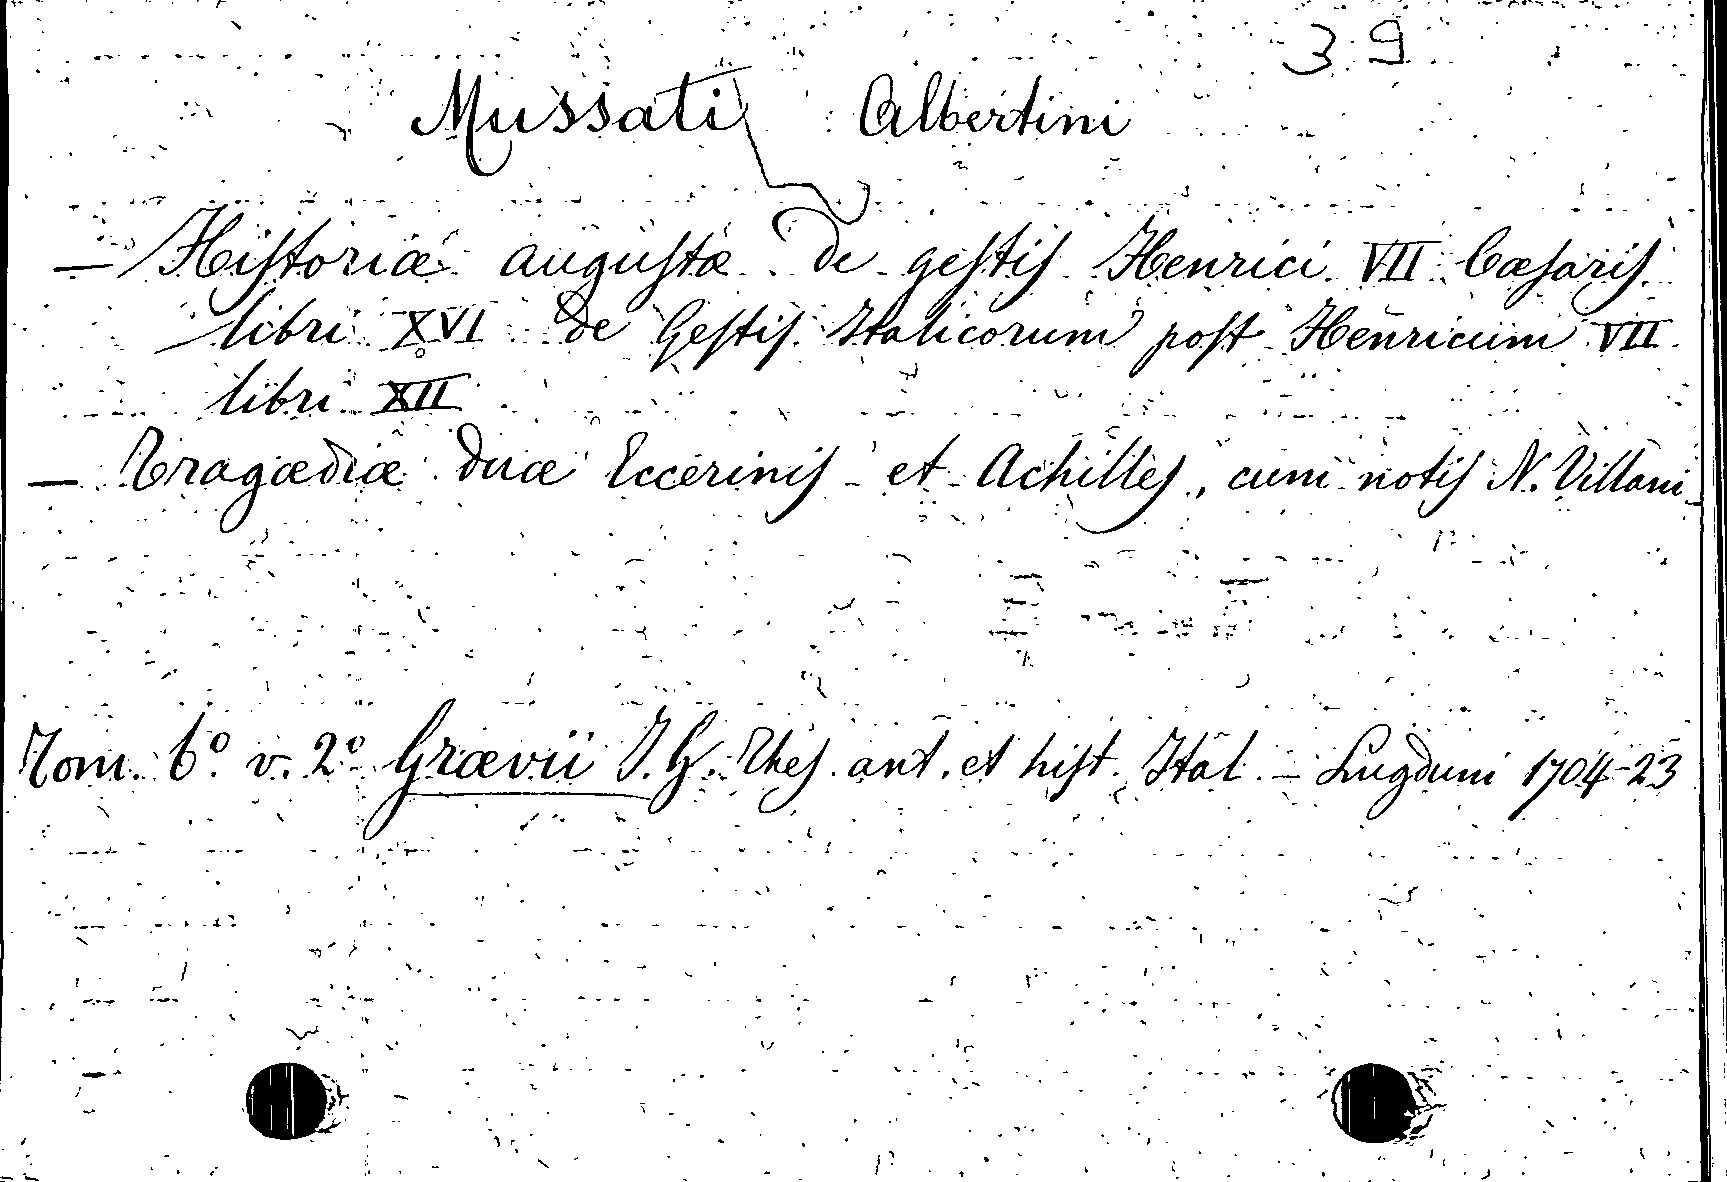 39
Mussati Albertini
— Historiæ augustæ de gestis Henrici VII Cæsaris
libri XVI de Gestis Italicorum post Henricum VII
libri XII
— Tragædiæ duæ Eccerinis et Achilles, cum notis N. Villani
Tom. 6º v. 2º Grævii J. G. Thes. ant. et hist. Ital. — Lugduni 1704-23